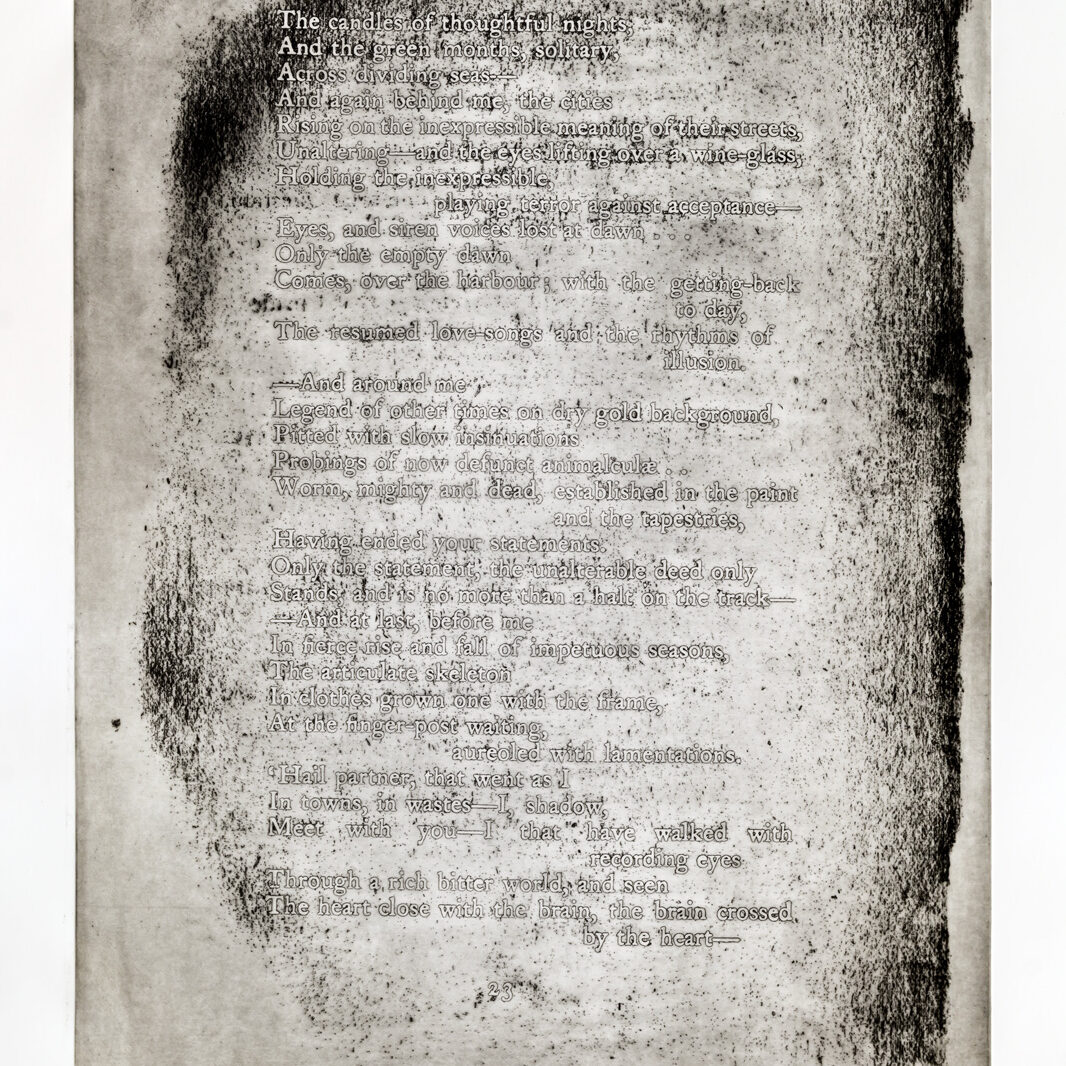 The candles of thoughtful nights,
And the green months, solitary,
Across dividing seas—
And again behind me, the cities
Rising on the inexpressible meaning of their streets,
Unaltering—and the eyes lifting over a wine-glass,
Holding the inexpressible,
playing terror against acceptance—
Eyes, and siren voices lost at dawn . . .
Only the empty dawn
Comes, over the harbour; with the getting-back
to day,
The resumed love-songs and the rhythms of
illusion.
—And around me,
Legend of other times on dry gold background,
Pitted with slow insinuations
Probings of now defunct animalculæ . .
Worm, mighty and dead, established in the paint
and the tapestries,
Having ended your statements.
Only the statement, the unalterable deed only
Stands, and is no more than a halt on the track—
—And at last, before me
In fierce rise and fall of impetuous seasons,
The articulate skeleton
In clothes grown one with the frame,
At the finger-post waiting,
aureoled with lamentations.
"Hail partner, that went as I
In towns, in wastes—I, shadow,
Meet with you—I that have walked with
recording eyes
Through a rich bitter world, and seen
The heart close with the brain, the brain crossed
by the heart—
23